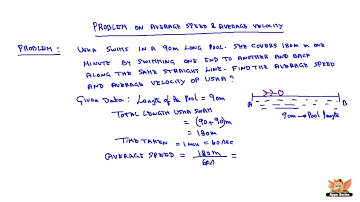 PROBLEM ON AVERAGE SPEED & AVERAGE VELOCITY
PROBLEM: USHA SWIMS IN A 90m LONG POOL. SHE COVERS 180m IN ONE
MINUTE BY SWIMMING ONE END TO ANOTHER AND BACK
ALONG THE SAME STRAIGHT LINE. FIND THE AVERAGE SPEED
AND AVERAGE VELOCITY OF USHA?
Given Data: Length of the Pool = 90m
TOTAL LENGTH USHA SWAM
= (90+90)m
= 180m
TIME TAKEN = 1 min = 60 sec
AVERAGE SPEED = 180m =
A B
90m → Pool length